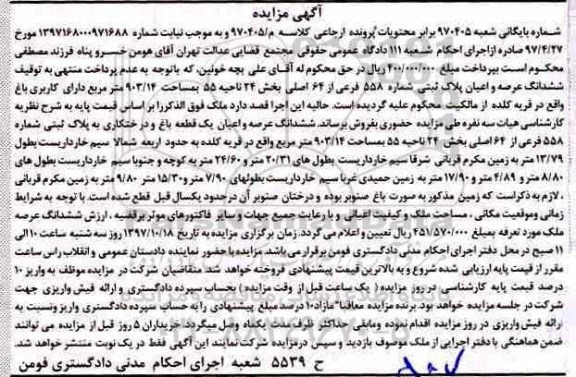 آگهی مزایده
شماره بایگانی شعبه ۹۷۰۴۰۵ برابر محتویات پرونده ارجاعی کلاسه م/۹۷۰۴۰۵ و به موجب نیابت شماره ۱۳۹۷۱۶۸۰۰۰۹۷۱۶۸۸ مورخ
۹۷/۴/۲۷ صادره ازاجرای احکام شعبه ۱۱۱ دادگاه عمومی حقوقی مجتمع قضایی عدالت تهران آقای هومن خسرو پناه فرزند مصطفی
محکوم است بپرداخت مبلغ ۴۰۰/۰۰۰/۰۰۰ ریال در حق محکوم له آقای علی بچه خونین، که باتوجه به عدم پرداخت منتهی به توقیف
ششدانگ عرصه و اعیان پلاک ثبتی شماره ۵۵۸ فرعی از ۶۴ اصلی بخش ۲۴ ناحیه ۵۵ بمساحت ۹۰۳/۱۴ متر مربع دارای کاربری باغ
واقع در قریه کلده از مالکیت محکوم علیه گردیده است. حالیه این اجرا قصد دارد ملک فوق الذکررا بر اساس قیمت پایه به شرح نظریه
کارشناسی هیات سه نفره طی مزایده حضوری بفروش برساند. ششدانگ عرصه و اعیان یک قطعه باغ و درختکاری به پلاک ثبتی شماره
۵۵۸ فرعی از ۶۴ اصلی بخش ۲۴ ناحیه ۵۵ بمساحت ۹۰۳/۱۴ متر مربع واقع در قریه کلده به حدود اربعه شمالا سیم خارداریست بطول
۱۳/۷۹ متر به زمین مکرم قربانی شرقا سیم خارداریست بطول های ۲۰/۳۱ متر و ۲۴/۶۰ متر به کوچه و جنوبا سیم خارداریست بطول های
۸/۸۰ متر و ۴/۸۹ متر و ۱۷/۹۰ متر به زمین حمیدی غربا سیم خارداریست بطولهای ۷/۹۰ متر و ۱۵/۳۰ متر و ۹/۸۰ متر به زمین مکرم قربانی
، لازم به ذکراست که زمین مذکور به صورت باغ صنوبر بوده و درختان صنوبر آن درحدود یکسال قبل قطع شده است. با توجه به شرایط
زمانی وموقعیت مکانی، مساحت ملک و کیفیت اعیانی و با رعایت جمیع جهات و سایر فاکتورهای موثر برقضیه، ارزش ششدانگ عرصه
ملک مورد تعرفه بمبلغ ۴۵۱/۵۷۰/۰۰۰ ریال تعیین و اعلام می گردد. زمان برگزاری مزایده به تاریخ ۱۳۹۷/۱۰/۱۸ روز سه شنبه ساعت ۱۰ الی
۱۱ صبح در محل دفتر اجرای احکام مدنی دادگستری فومن برقرار می باشد. مزایده با حضور نماینده دادستان عمومی و انقلاب راس ساعت
مقرر از قیمت پایه ارزیابی شده شروع و به بالاترین قیمت پیشنهادی فروخته خواهد شد. متقاضیان شرکت در مزایده موظف به واریز ۱۰
درصد قیمت پایه کارشناسی در روز مزایده ( یک ساعت قبل از وقت مزایده ) بحساب سپرده دادگستری و ارائه فیش واریزی جهت
شرکت در جلسه مزایده خواهد بود. برنده مزایده معاقبا" مازاد ۱۰ درصد مبلغ پیشنهادی را به حساب سپرده دادگستری واریز ونسبت به
ارائه فیش واریزی در روز مزایده اقدام نموده ومابقی حداکثر ظرف مدت یکماه وصل میگردد. خریداران ۵ روز قبل از مزایده می توانند
ضمن هماهنگی با دفتر اجرایی از ملک موصوف بازدید و سپس درمزایده شرکت نمایند این آگهی فقط در یک نوبت منتشر خواهد شد.
ح ۵۵۳۹ شعبه اجرای احکام مدنی دادگستری فومن